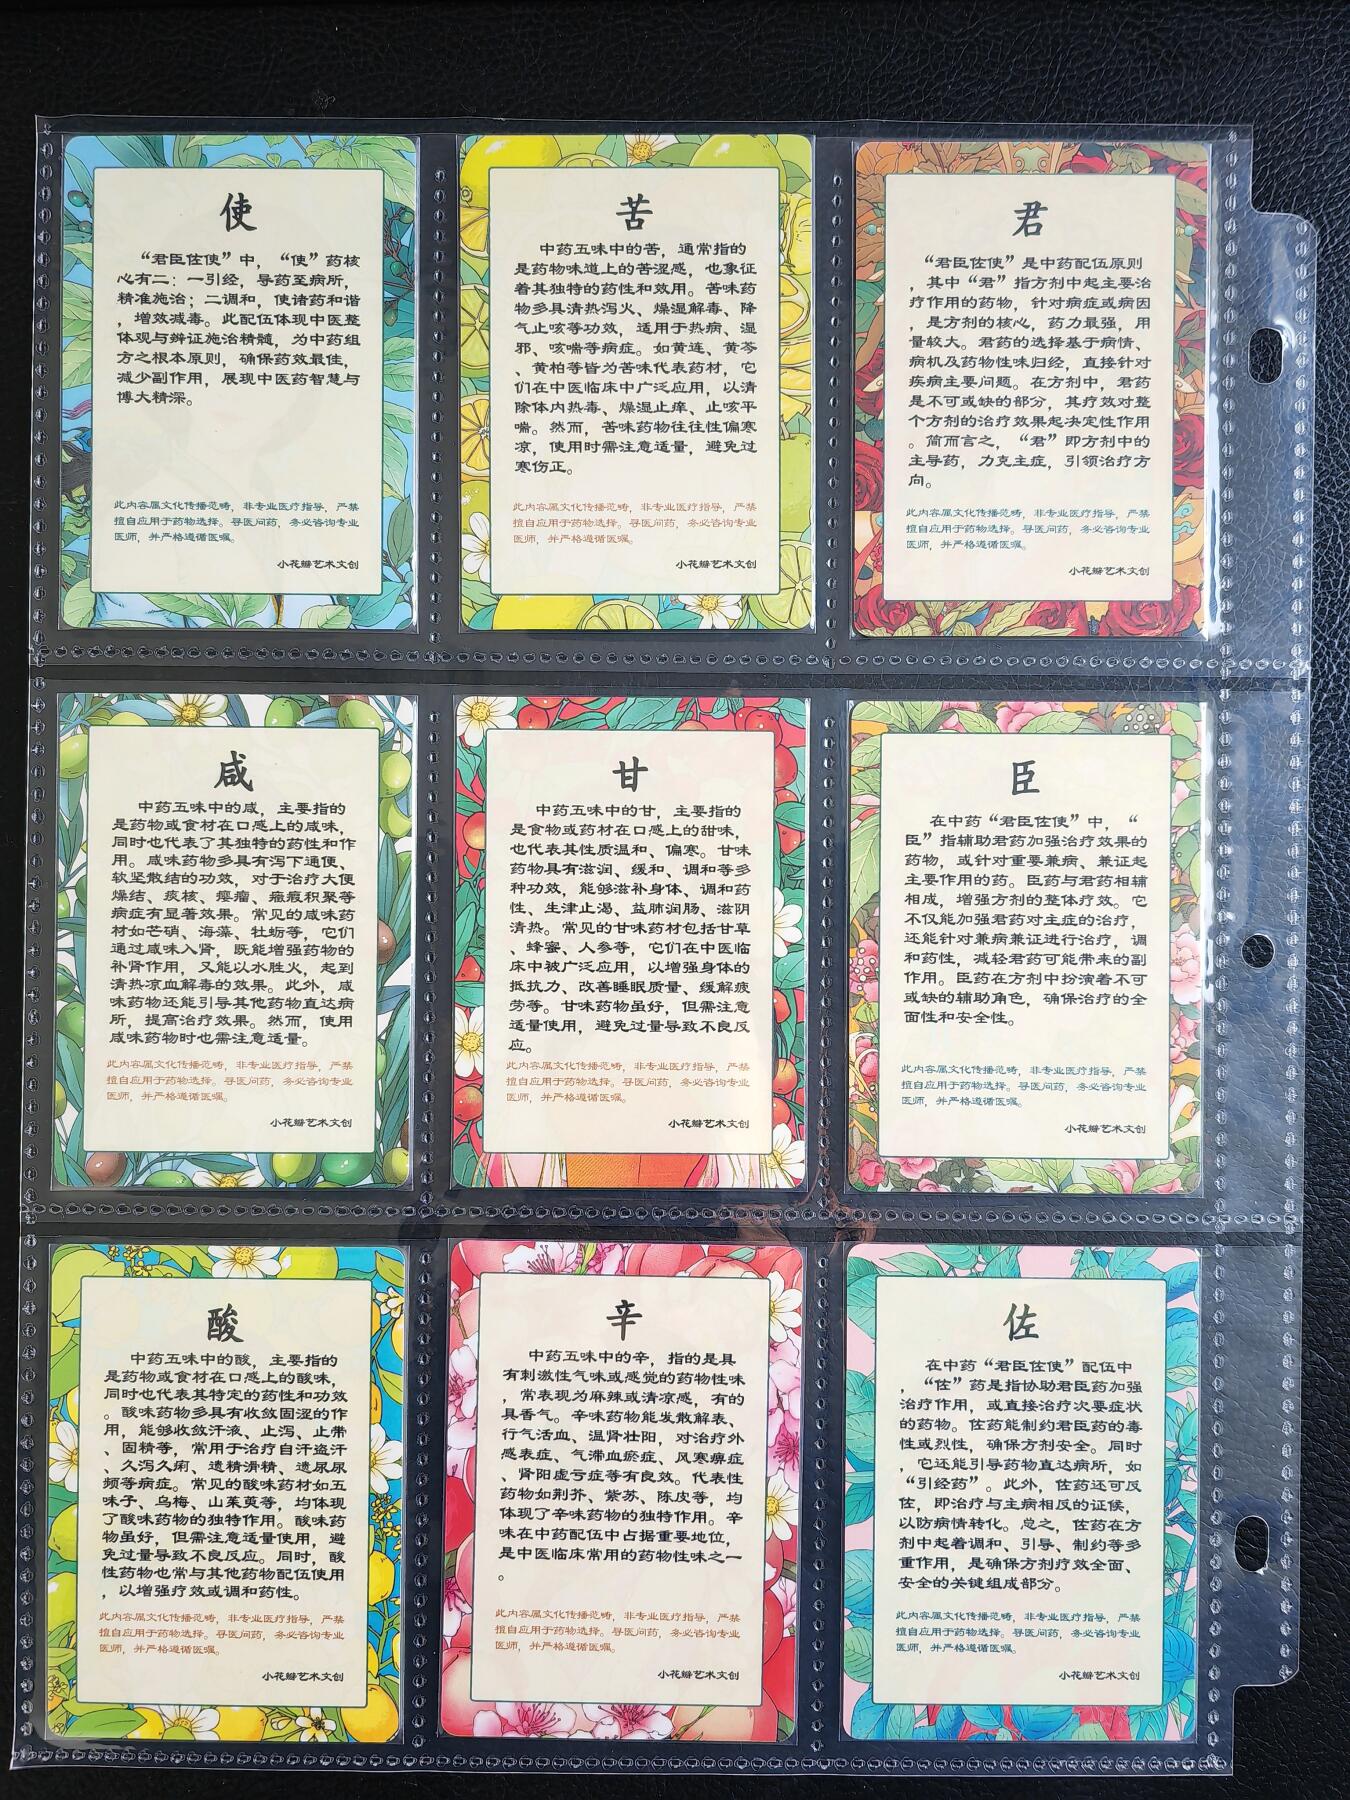 使
“君臣佐使”中，“使”药核
心有二：一引经，导药至病所，
精准施治；二调和，使诸药和谐
，增效减毒。此配伍体现中医整
体观与辨证施治精髓，为中药组
方之根本原则，确保药效最佳，
减少副作用，展现中医药智慧与
博大精深。
此内容属文化传播范畴，非专业医疗指导，严禁
擅自应用于药物选择。寻医问药，务必咨询专业
医师，并严格遵循医嘱。
小花瓣艺术文创
苦
中药五味中的苦，通常指的
是药物味道上的苦涩感，也象征
着其独特的药性和效用。苦味药
物多具清热泻火、燥湿解毒、降
气止咳等功效，适用于热病、湿
邪、咳喘等病症。如黄连、黄芩
、黄柏等皆为苦味代表药材，它
们在中医临床中广泛应用，以清
除体内热毒、燥湿止痒、止咳平
喘。然而，苦味药物往往性偏寒
凉，使用时需注意适量，避免过
寒伤正。
此内容属文化传播范畴，非专业医疗指导，严禁
擅自应用于药物选择。寻医问药，务必咨询专业
医师，并严格遵循医嘱。
小花瓣艺术文创
君
“君臣佐使”是中药配伍原则
，其中“君”指方剂中起主要治
疗作用的药物，针对病症或病因
，是方剂的核心，药力最强，用
量较大。君药的选择基于病情、
病机及药物性味归经，直接针对
疾病主要问题。在方剂中，君药
是不可或缺的部分，其疗效对整
个方剂的治疗效果起决定性作用
。简而言之，“君”即方剂中的
主导药，力克主症，引领治疗方
向。
此内容属文化传播范畴，非专业医疗指导，严禁
擅自应用于药物选择。寻医问药，务必咨询专业
医师，并严格遵循医嘱。
小花瓣艺术文创
咸
中药五味中的咸，主要指的
是药物或食材在口感上的咸味，
同时也代表了其独特的药性和作
用。咸味药物多具有泻下通便、
软坚散结的功效，对于治疗大便
燥结、痰核、瘿瘤、癥瘕积聚等
病症有显著效果。常见的咸味药
材如芒硝、海藻、牡蛎等，它们
通过咸味入肾，既能增强药物的
补肾作用，又能以水胜火，起到
清热凉血解毒的效果。此外，咸
味药物还能引导其他药物直达病
所，提高治疗效果。然而，使用
咸味药物时也需注意适量。
此内容属文化传播范畴，非专业医疗指导，严禁
擅自应用于药物选择。寻医问药，务必咨询专业
医师，并严格遵循医嘱。
小花瓣艺术文创
甘
中药五味中的甘，主要指的
是食物或药材在口感上的甜味，
也代表其性质温和、偏寒。甘味
药物具有滋润、缓和、调和等多
种功效，能够滋补身体、调和药
性、生津止渴、益肺润肠、滋阴
清热。常见的甘味药材包括甘草
、蜂蜜、人参等，它们在中医临
床中被广泛应用，以增强身体的
抵抗力、改善睡眠质量、缓解疲
劳等。甘味药物虽好，但需注意
适量使用，避免过量导致不良反
应。
此内容属文化传播范畴，非专业医疗指导，严禁
擅自应用于药物选择。寻医问药，务必咨询专业
医师，并严格遵循医嘱。
小花瓣艺术文创
臣
在中药“君臣佐使”中，“
臣”指辅助君药加强治疗效果的
药物，或针对重要兼病、兼证起
主要作用的药。臣药与君药相辅
相成，增强方剂的整体疗效。它
不仅能加强君药对主症的治疗，
还能针对兼病兼证进行治疗，调
和药性，减轻君药可能带来的副
作用。臣药在方剂中扮演着不可
或缺的辅助角色，确保治疗的全
面性和安全性。
此内容属文化传播范畴，非专业医疗指导，严禁
擅自应用于药物选择。寻医问药，务必咨询专业
医师，并严格遵循医嘱。
小花瓣艺术文创
酸
中药五味中的酸，主要指的
是药物或食材在口感上的酸味，
同时也代表其特定的药性和功效
。酸味药物多具有收敛固涩的作
用，能够收敛汗液、止泻、止带
、固精等，常用于治疗自汗盗汗
、久泻久痢、遗精滑精、遗尿尿
频等病症。常见的酸味药材如五
味子、乌梅、山茱萸等，均体现
了酸味药物的独特作用。酸味药
物虽好，但需注意适量使用，避
免过量导致不良反应。同时，酸
性药物也常与其他药物配伍使用
，以增强疗效或调和药性。
此内容属文化传播范畴，非专业医疗指导，严禁
擅自应用于药物选择。寻医问药，务必咨询专业
医师，并严格遵循医嘱。
小花瓣艺术文创
辛
中药五味中的辛，指的是具
有刺激性气味或感觉的药物性味
，常表现为麻辣或清凉感，有的
具香气。辛味药物能发散解表、
行气活血、温肾壮阳，对治疗外
感表症、气滞血瘀症、风寒痹症
、肾阳虚亏症等有良效。代表性
药物如荆芥、紫苏、陈皮等，均
体现了辛味药物的独特作用。辛
味在中药配伍中占据重要地位，
是中医临床常用的药物性味之一
。
此内容属文化传播范畴，非专业医疗指导，严禁
擅自应用于药物选择。寻医问药，务必咨询专业
医师，并严格遵循医嘱。
小花瓣艺术文创
佐
在中药“君臣佐使”配伍中
，“佐”药是指协助君臣药加强
治疗作用，或直接治疗次要症状
的药物。佐药能制约君臣药的毒
性或烈性，确保方剂安全。同时
，它还能引导药物直达病所，如
“引经药”。此外，佐药还可反
佐，即治疗与主病相反的证候，
以防病情转化。总之，佐药在方
剂中起着调和、引导、制约等多
重作用，是确保方剂疗效全面、
安全的关键组成部分。
此内容属文化传播范畴，非专业医疗指导，严禁
擅自应用于药物选择。寻医问药，务必咨询专业
医师，并严格遵循医嘱。
小花瓣艺术文创